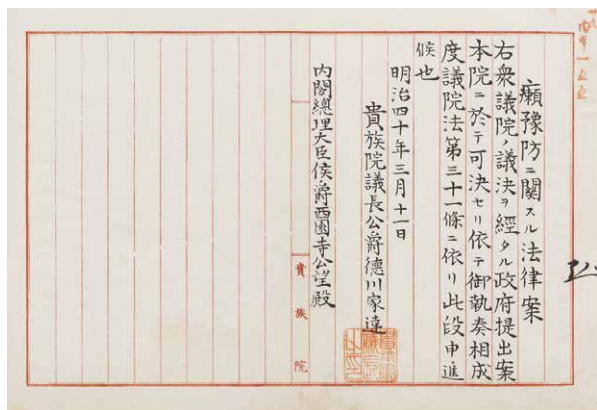 癩豫防ニ關スル法律案
右衆議院ノ議決ヲ經タル政府提出案
本院ニ於テ可決セリ依テ御執奏相成
度議院法第三十一條ニ依リ此段申進
候也
明治四十年三月十一日
貴族院議長公爵德川家達
內閣總理大臣侯爵西園寺公望殿
貴族院